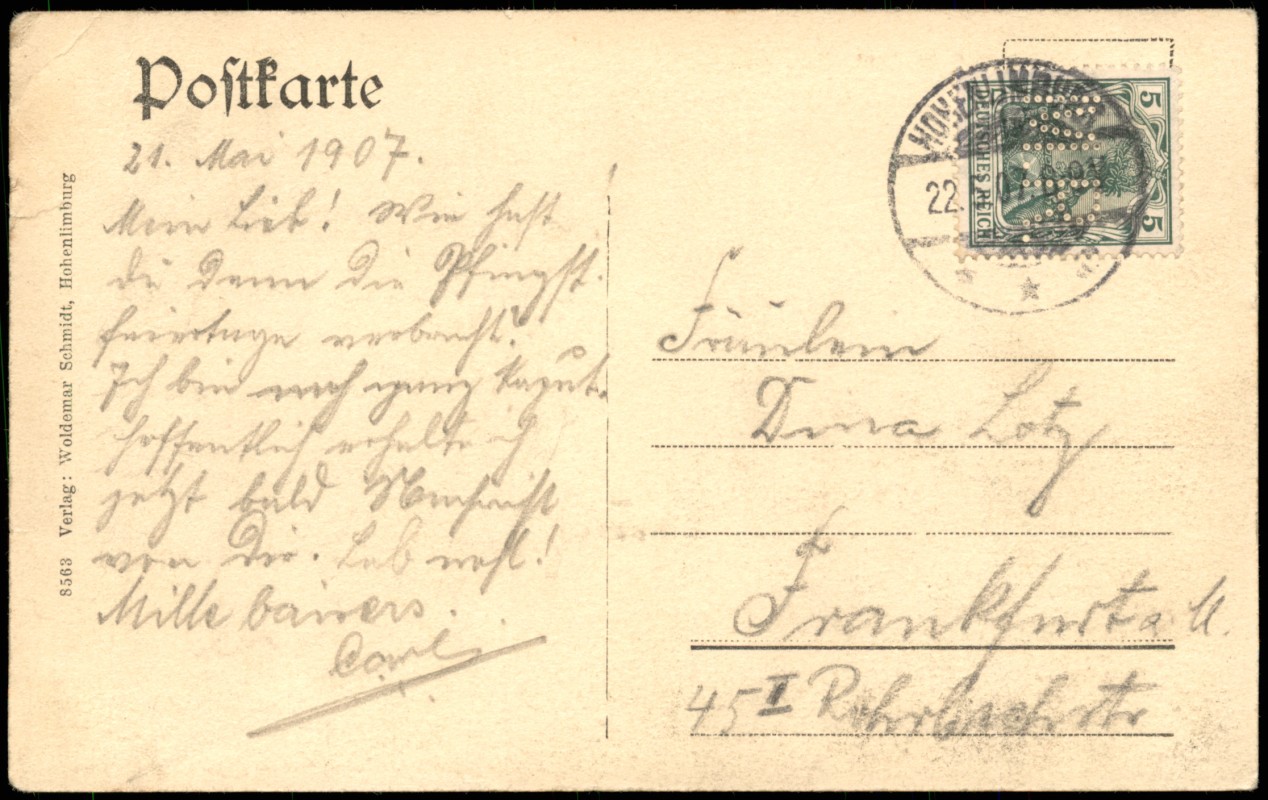 Postkarte
21. Mai 1907.
Mein Lieb! Wie hast
du denn die Pfingst-
feiertage verbracht?
Ich bin noch ganz kaput.
hoffentlich erhalte ich
jetzt bald Nachricht
von Dir. Leb wohl!
Mille baisers.
Carl
8563 Verlag: Woldemar Schmidt, Hohenlimburg
HOHENLIMBURG
22.
DEUTSCHES REICH
5
5
Fräulein
Dina Lotz
Frankfurt a M.
45 I Rohrbachstr